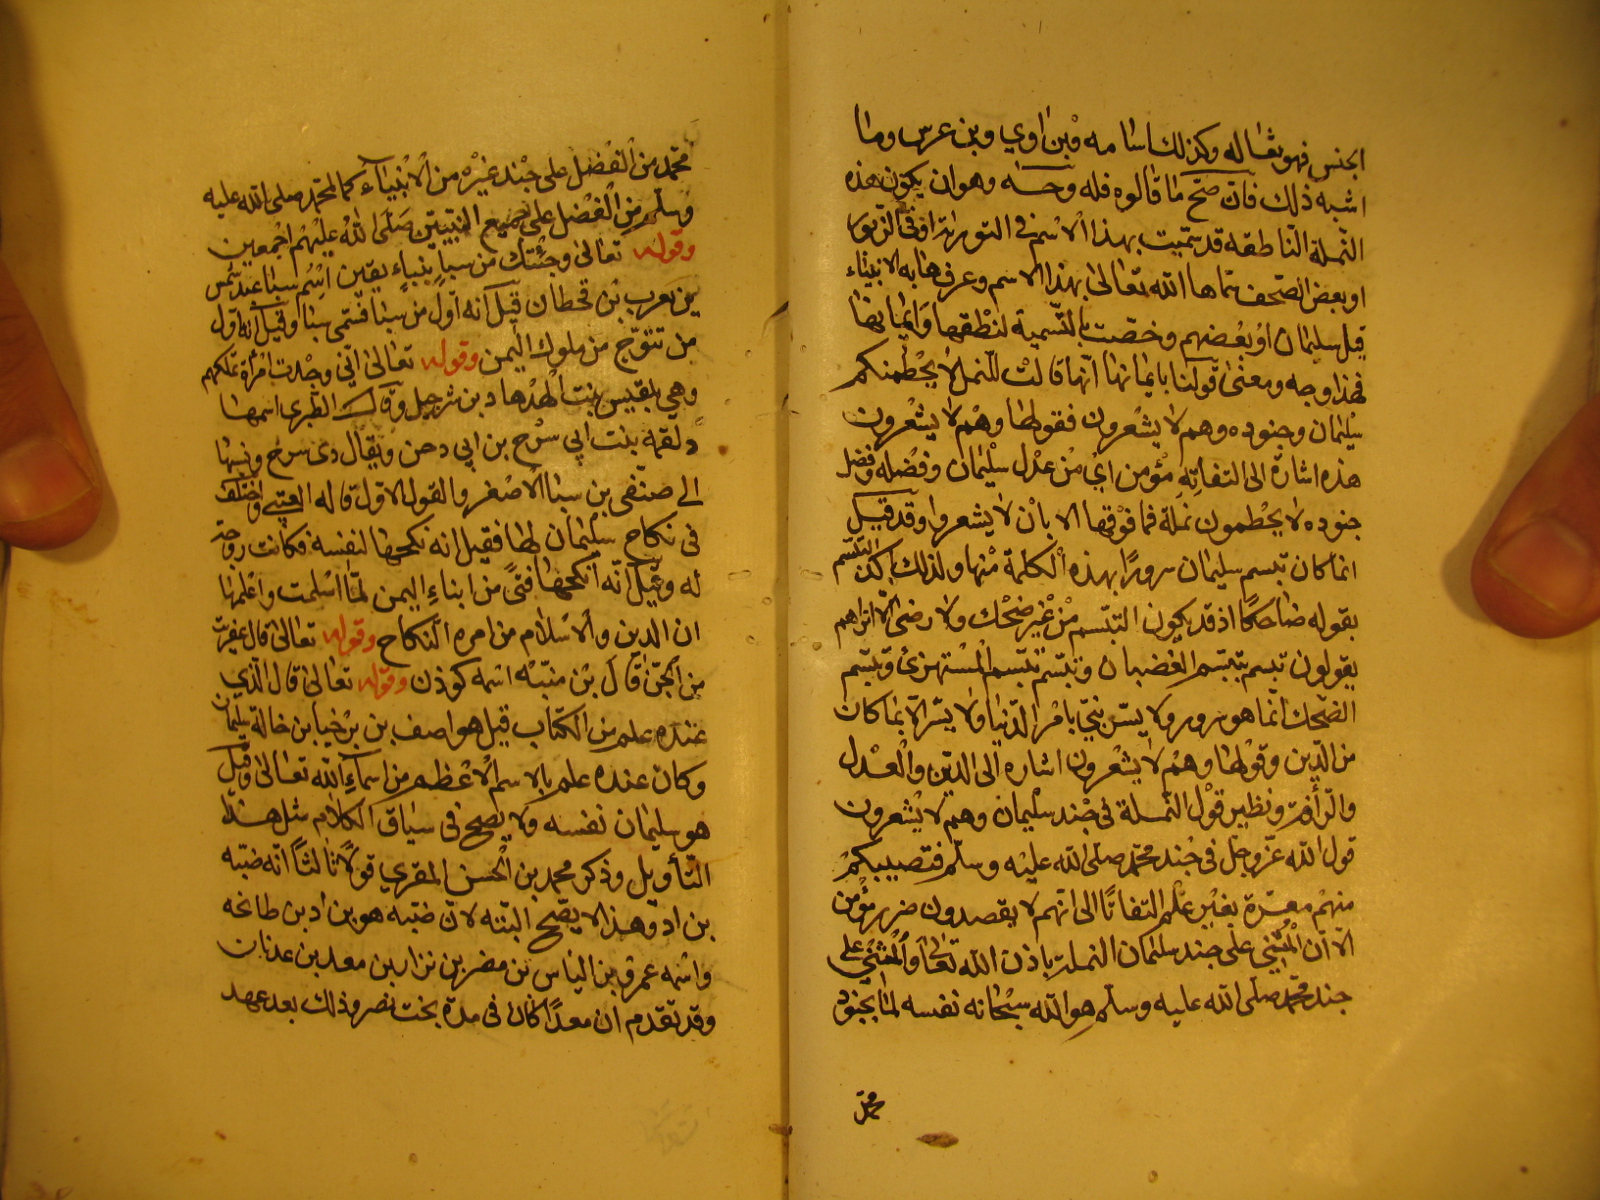 الجنس فهو ثعاله وكذلك اسامه وبن اوي وبن عرس وما
اشبه ذلك فان صحّ ما قالوه فله وجه وهو ان يكون هذه
النملة الناطقه قد سمّيت بهذا الاسم في التوراة او في الزبور
او بعض الصحف سمّاها الله تعالى بهذا الاسم وعرفها به الانبياء
قبل سليمان او بعضهم وخصّت بالتسمية لنطقها وايمانها
فهذا وجه ومعنى قولنا بايمانها انها قالت للنمل لا يحطمنكم
سليمان وجنوده وهم لا يشعرون فقولها وهم لا يشعرون
هذه اشارة الى التفاتِهِ مؤمن اي من عدل سليمان وفضله وفضل
جنوده لا يحطمون نملة فما فوقها الا بان لا يشعروا وقد قيل
انما كان تبسم سليمان سرورًا بهذه الكلمة منها ولذلك اكد التبسّم
بقوله ضاحكًا اذ قد يكون التبسم من غير ضحك ولا رضى الا تراهم
يقولون تبسم تبسّم الغضبان وتبسّم تبسّم المستهزئ وتبسّم
الضحك انما هو سرور ولا يسرّ نبيّ بامر الدنيا ولا يسرّ الا بما كان
من الدين وقولها وهم لا يشعرون اشاره الى الدين والعدل
والرأفة ونظير قول النملة في جند سليمان وهم لا يشعرون
قول الله عزّ وجل في جند محمد صلى الله عليه وسلم فتصيبكم
منهم معرّة بغير علم التفاتًا الى انهم لا يقصدون ضرر مؤمن
الا ان المثني على جند سليمان النملة باذن الله تعالى والمثني على
جند محمد صلى الله عليه وسلم هو الله سبحانه نفسه لما بجنود
محمد
محمد من الفضل على جند غيره من الانبياء كما لمحمد صلى الله عليه
وسلم من الفضل على جميع النبيين صلى الله عليهم اجمعين
وقوله تعالى وجئتك من سبإ بنباءٍ يقين اسم سبا عبد شمس
بن يعرب بن قحطان قيل انه اول من سبا فسمى سبا وقيل انه اول
من تتوّج من ملوك اليمن وقوله تعالى اني وجدت امراة تملكهم
وهي بلقيس بنت الهدهاد بن شرحبيل وقال الطبري اسمها
دلقمة بنت ابي سرح بن ابي دحن ويقال دى سرح ونسبها
الى صنتفى بن سبا الاصغر والقول الاول قاله العتبي واختلف
في نكاح سليمان لها فقيل انه نكحها لنفسه فكانت زوجة
له وقيل انه انكحها فتى من ابناء اليمن لمّا اسلمت واعلمها
ان الدين والاسلام من امره النكاح وقوله تعالى قال عفريت
من الجن قال بن منبّه اسمه كوذن وقوله تعالى قال الذي
عنده علم من الكتاب قيل هو اصف بن برخيا بن خالة سليمان
وكان عنده علم بالاسم الاعظم من اسماء الله تعالى وقيل
هو سليمان نفسه ولا يصح في سياق الكلام مثل هذا
التأويل وذكر محمد بن الحسن المقري قولًا ثالثًا انه ضبّه
بن اد وهذا لا يصّح البتّه لان ضبّه هو بن اد بن طابخه
واسمه عمرو بن الياس بن مضر بن نزار بن معد بن عدنان
وقد تقدم ان معدًا كان في مدّة بخت نصر وذلك بعد عهد